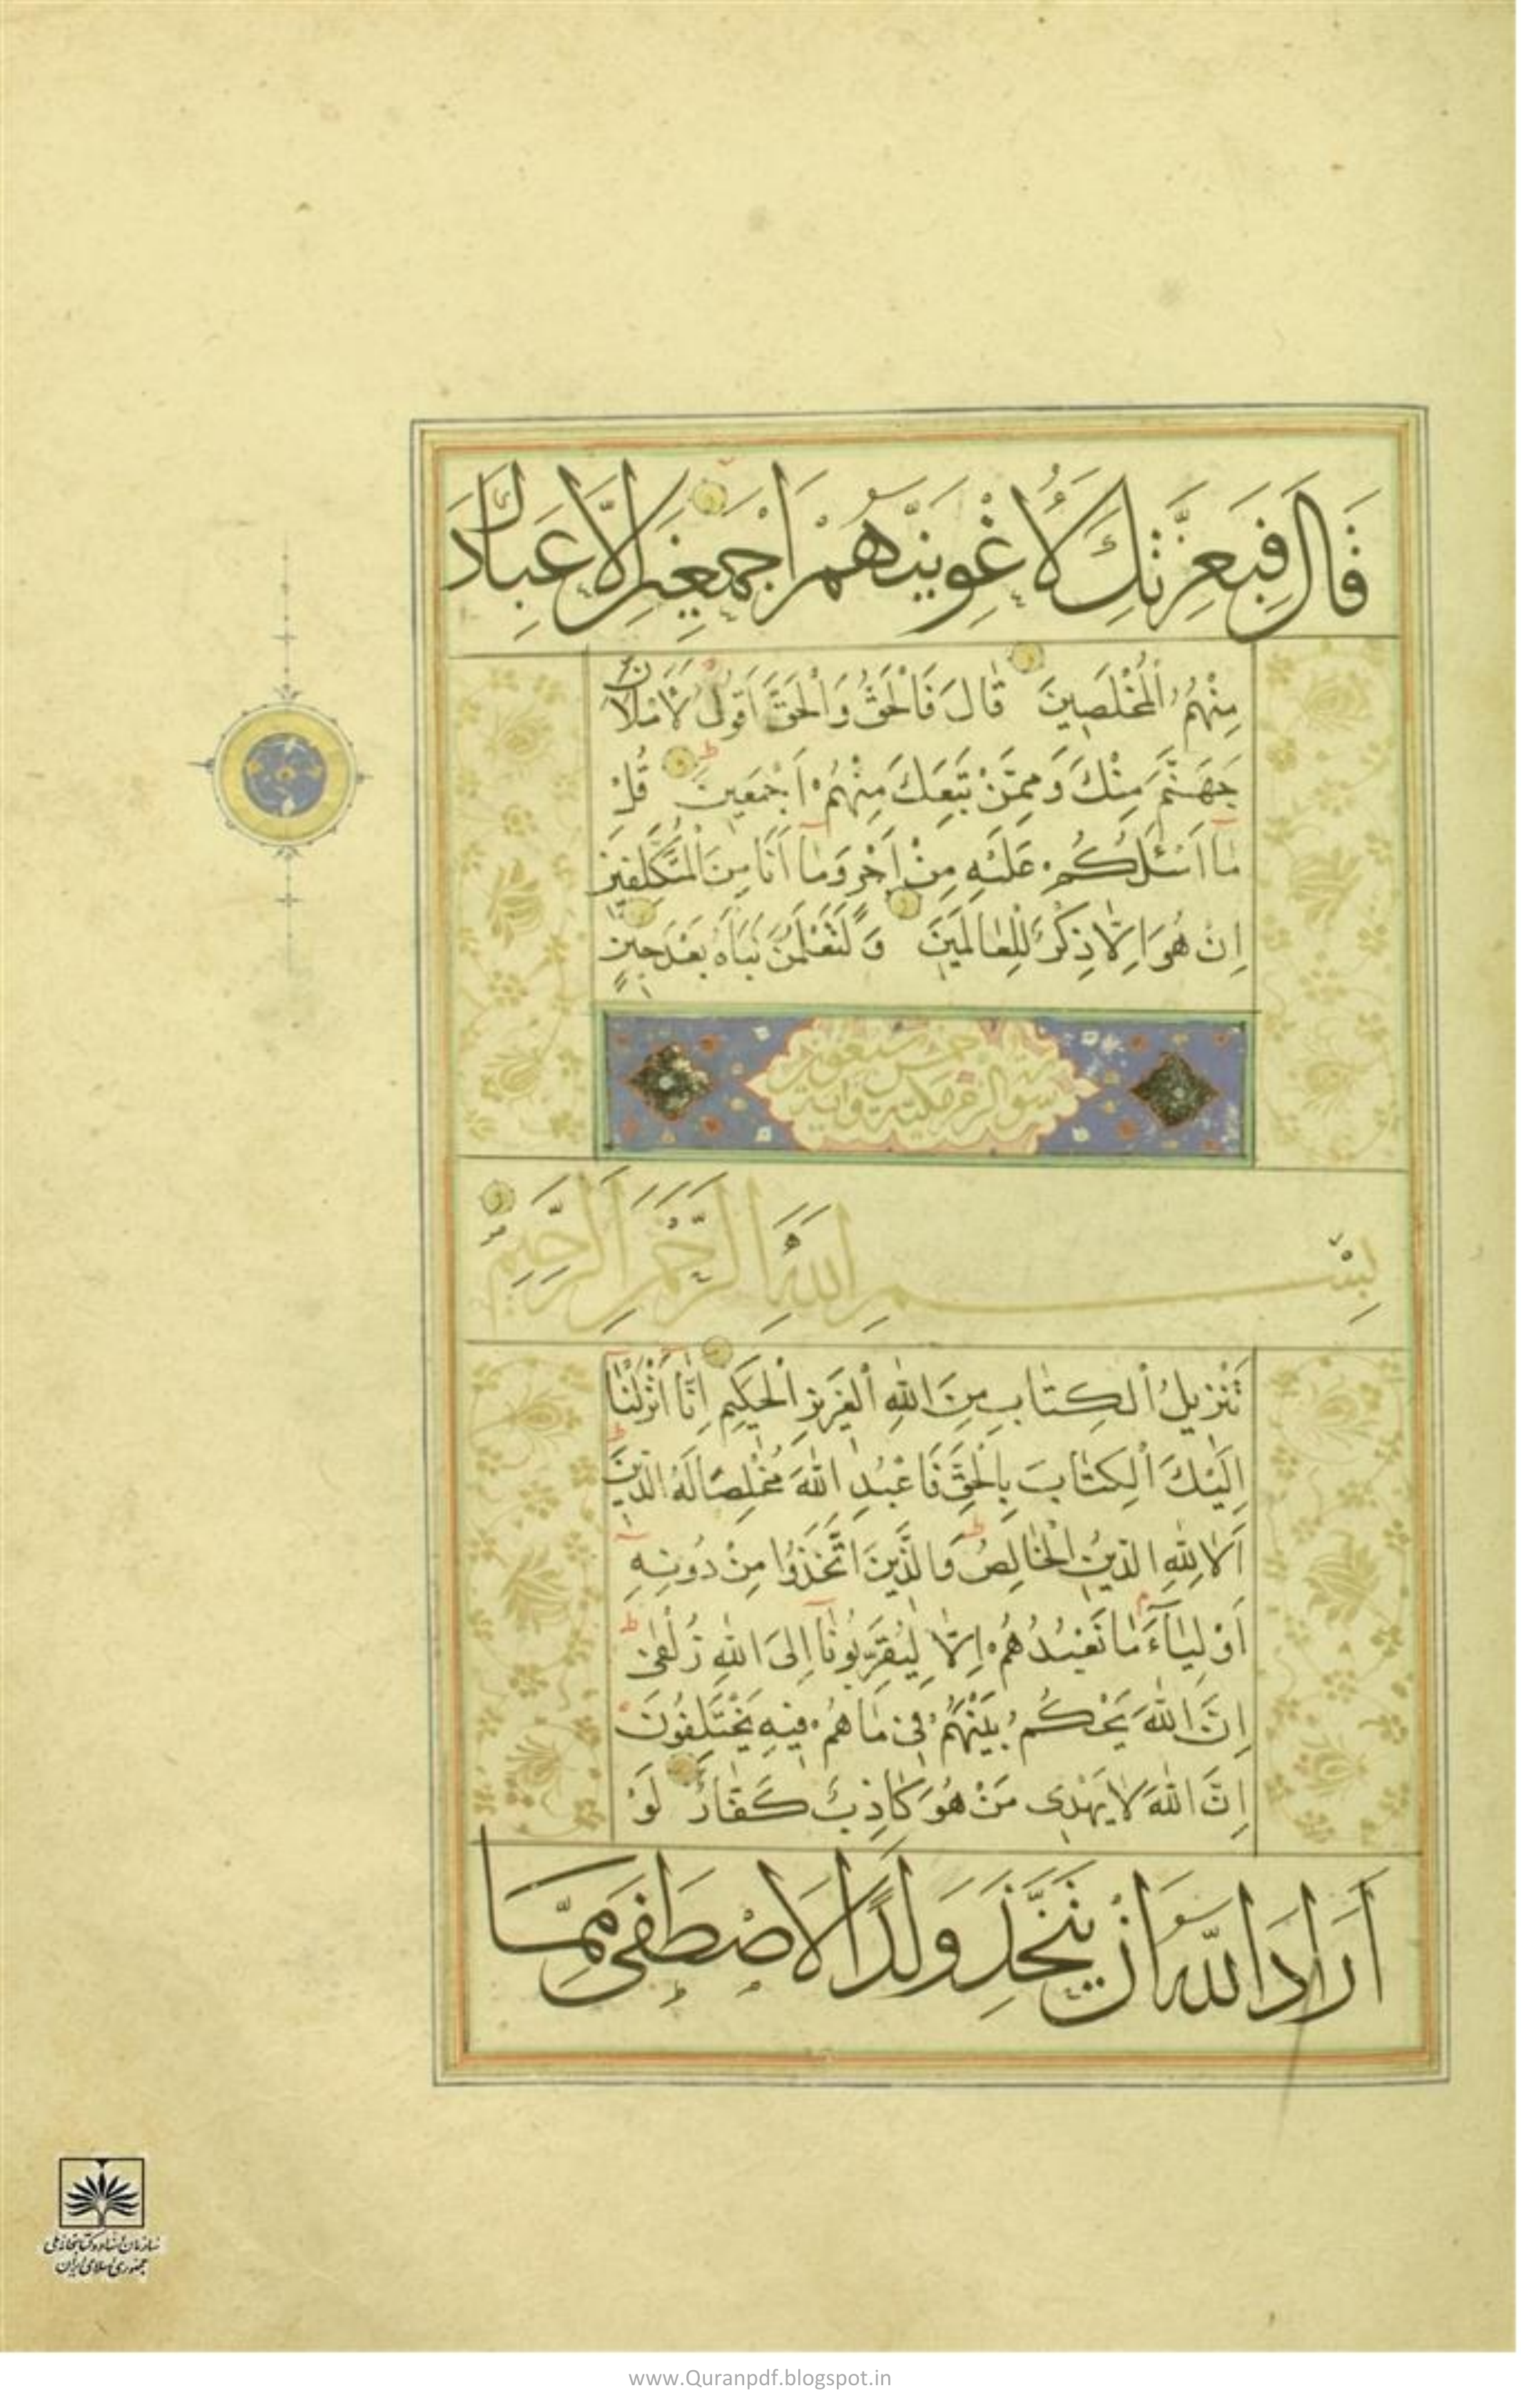 قَالَ فَبِعِزَّتِكَ لَأُغْوِيَنَّهُمْ أَجْمَعِينَ إِلَّا عِبَادَكَ
مِنْهُمُ الْمُخْلَصِينَ قَالَ فَالْحَقُّ وَالْحَقَّ أَقُولُ لَأَمْلَأَنَّ
جَهَنَّمَ مِنْكَ وَمِمَّنْ تَبِعَكَ مِنْهُمْ أَجْمَعِينَ قُلْ
مَا أَسْئَلُكُمْ عَلَيْهِ مِنْ أَجْرٍ وَمَا أَنَا مِنَ الْمُتَكَلِّفِينَ
إِنْ هُوَ إِلَّا ذِكْرٌ لِلْعَالَمِينَ وَلَتَعْلَمُنَّ نَبَأَهُ بَعْدَ حِينٍ
سورة الزمر مكية وآية
بِسْمِ اللَّهِ الرَّحْمَٰنِ الرَّحِيمِ
تَنْزِيلُ الْكِتَابِ مِنَ اللَّهِ الْعَزِيزِ الْحَكِيمِ إِنَّا أَنْزَلْنَا
إِلَيْكَ الْكِتَابَ بِالْحَقِّ فَاعْبُدِ اللَّهَ مُخْلِصًا لَهُ الدِّينَ
أَلَا لِلَّهِ الدِّينُ الْخَالِصُ وَالَّذِينَ اتَّخَذُوا مِنْ دُونِهِ
أَوْلِيَاءَ مَا نَعْبُدُهُمْ إِلَّا لِيُقَرِّبُونَا إِلَى اللَّهِ زُلْفَىٰ
إِنَّ اللَّهَ يَحْكُمُ بَيْنَهُمْ فِي مَا هُمْ فِيهِ يَخْتَلِفُونَ
إِنَّ اللَّهَ لَا يَهْدِي مَنْ هُوَ كَاذِبٌ كَفَّارٌ لَوْ
أَرَادَ اللَّهُ أَنْ يَتَّخِذَ وَلَدًا لَاصْطَفَىٰ مِمَّا
سازمان اسناد و کتابخانه ملی
جمهوری اسلامی ایران
www.Quranpdf.blogspot.in